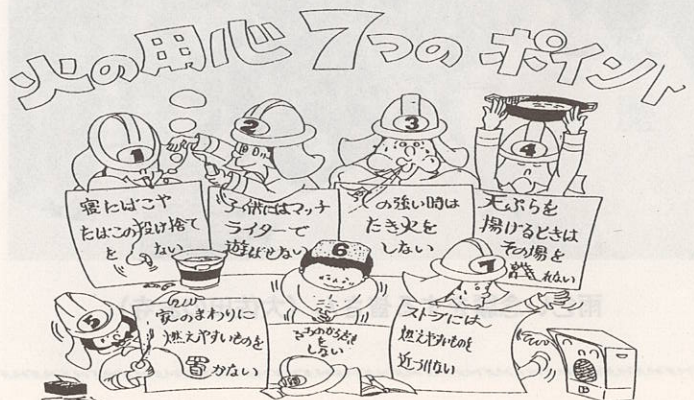 火の用心 7つの ポイント
1
寝たばこや
たばこの投げ捨て
を ない
2
子供にはマッチ
ライターで
遊ばせない
3
の強い時は
たき火を
しない
4
天ぷらを
揚げるときは
その場を
離れない
5
家のまわりに
燃えやすいものを
置かない
6
しない
7
ストーブには
燃えやすいものを
近づけない